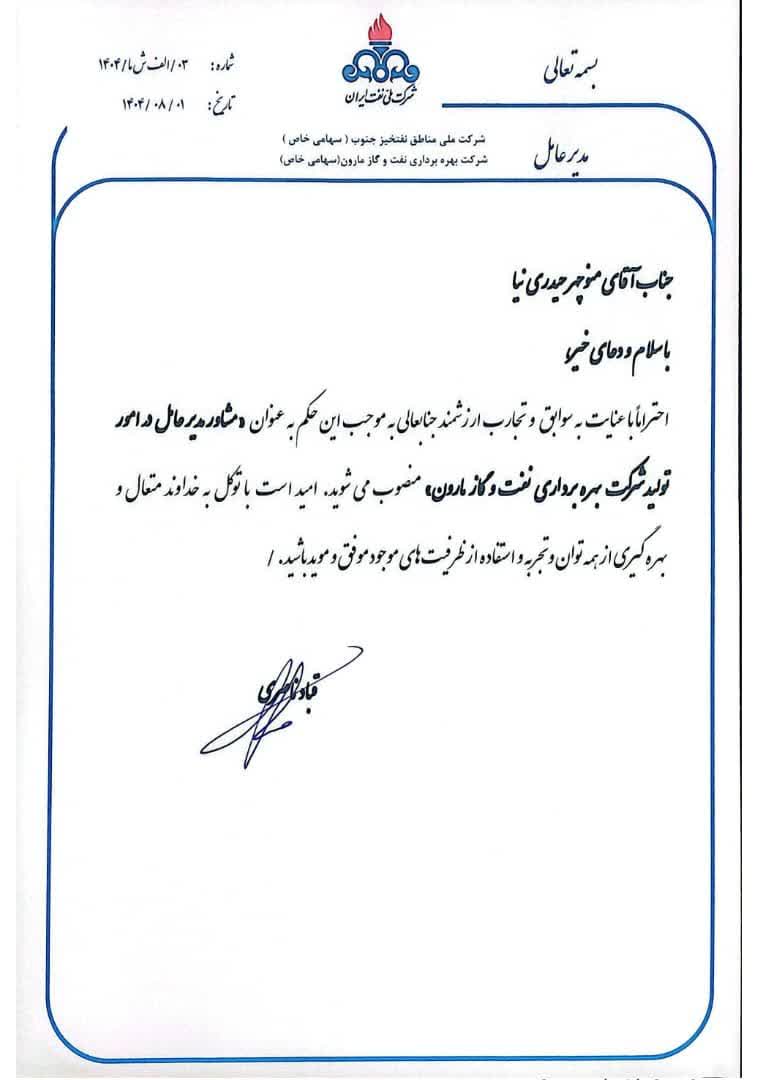 بسمه تعالی
شماره: ۰۳/الف ش ما/۱۴۰۴
تاریخ: ۱۴۰۴/۰۸/۰۱
شرکت ملی نفت ایران
مدیر عامل
شرکت ملی مناطق نفتخیز جنوب ( سهامی خاص )
شرکت بهره برداری نفت و گاز مارون(سهامی خاص)
جناب آقای منوچهر حیدری نیا
با سلام و دعای خیر؛
احتراماً با عنایت به سوابق و تجارب ارزشمند جنابعالی به موجب این حکم به عنوان «مشاور مدیر عامل در امور
تولید شرکت بهره برداری نفت و گاز مارون» منصوب می شوید. امید است با توکل به خداوند متعال و
بهره گیری از همه توان و تجربه و استفاده از ظرفیت های موجود موفق و موید باشید. /
قباد ناصری